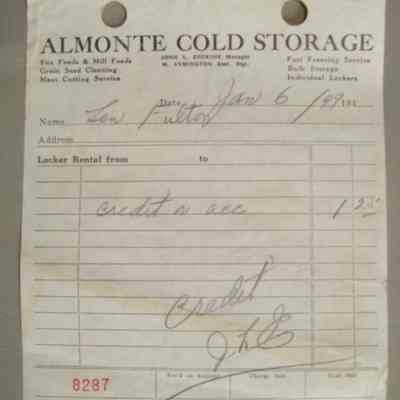 ALMONTE COLD STORAGE
Fox Feeds & Mill Feeds
Grain Seed Cleaning
Meat Cutting Service
JOHN L. Manager
M. SYMINGTON Asst. Mgr.
Fast Freezing Service
Bulk Storage
Individual Lockers
Date Jan 6 /49 19
Name Len Fulton
Address
Locker Rental from to
credit on acc 1 25
Credit
8287